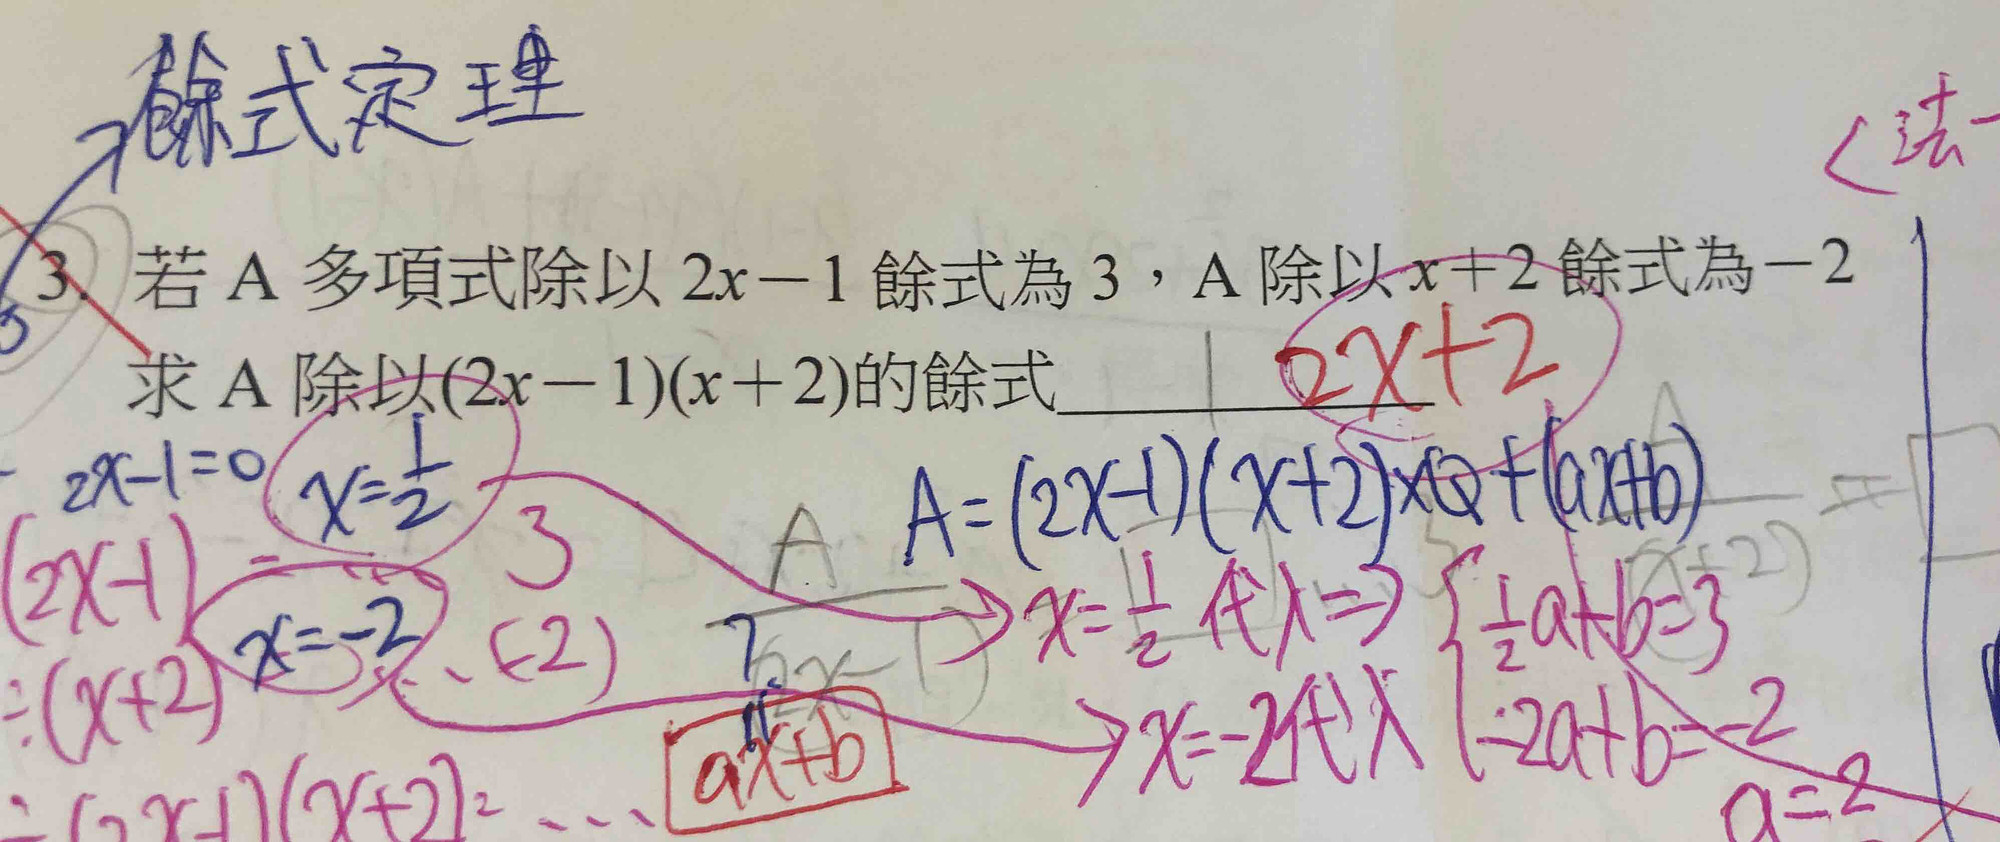 餘式定理
<法一
3. 若 A 多項式除以 2x－1 餘式為 3，A 除以 x＋2 餘式為－2
求 A 除以(2x－1)(x＋2)的餘式
2x+2
2x-1=0 x=1/2
A=(2x-1)(x+2)×Q+(ax+b)
(2x-1) 3
x=1/2 代入⇒ { 1/2a+b=3
÷(x+2) x=-2 ... (-2)
x=-2代入 -2a+b=-2
A
(2x-1)
A
(x+2)
=
?
÷(2x-1)(x+2)= ... ax+b
a=2